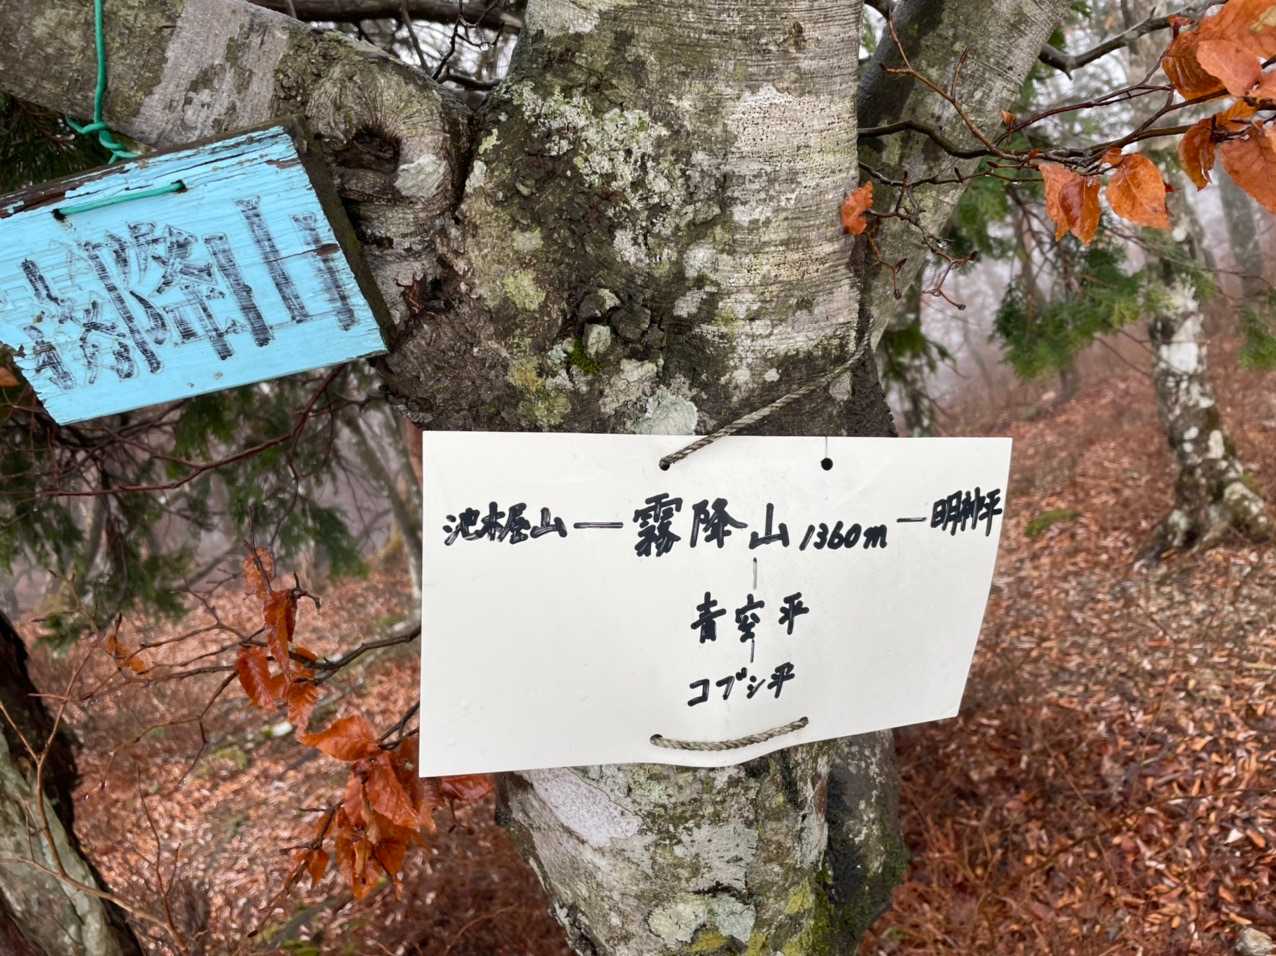 霧降山
池木屋山ー霧降山1360mー明神平
青空平
コブシ平